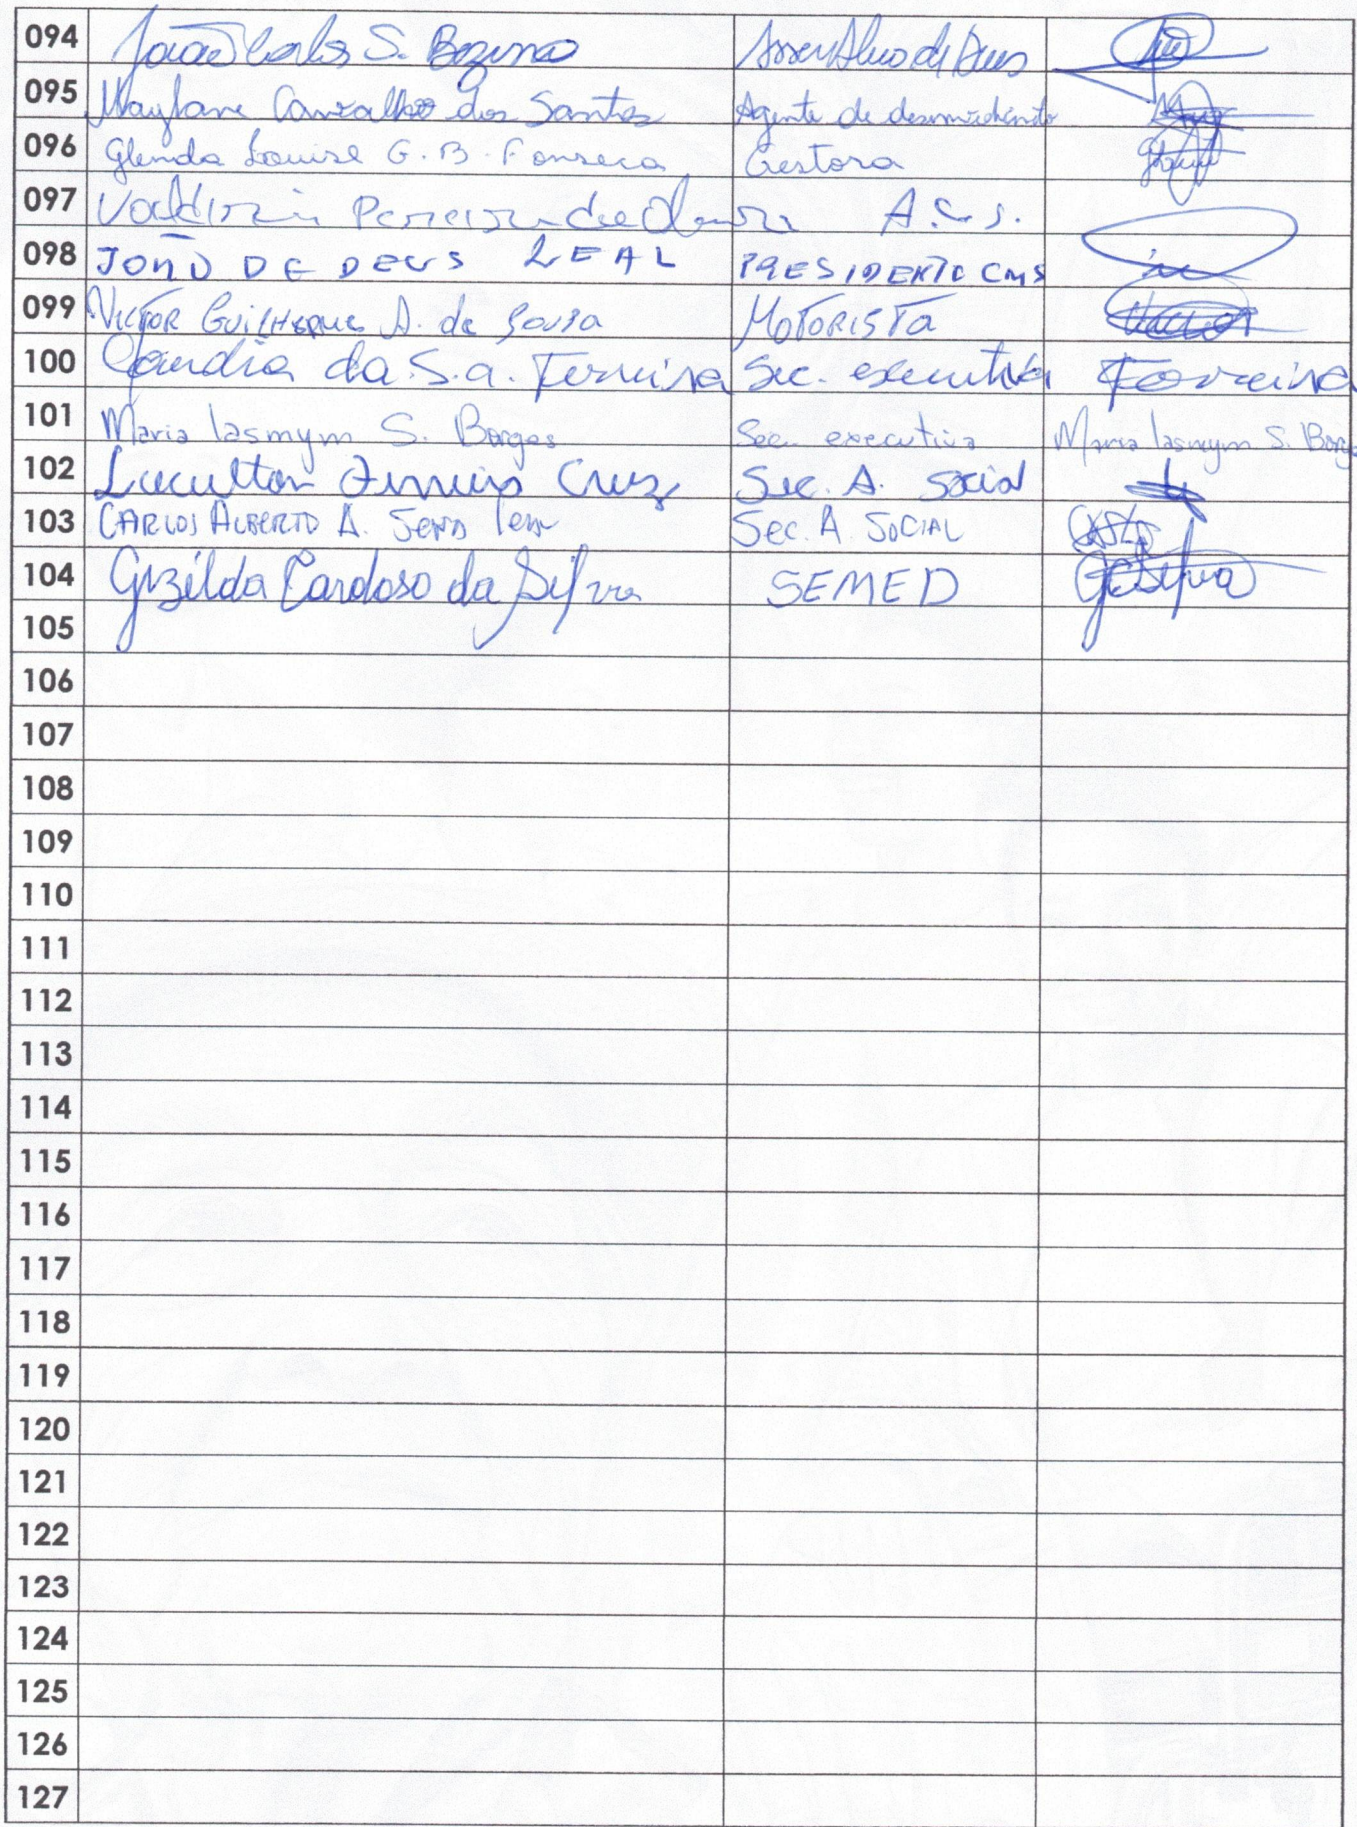 094 João Carlos S. Bezerra Assembleia de Deus
095 Maylane Carvalho dos Santos Agente de
096 Glenda Louise G. B. Fonseca Gestora
097 Pereira de A.C.S.
098 JOÃO DE DEUS LEAL PRESIDENTE CMS
099 VICTOR GUILHERME A. de Sousa MOTORISTA
100 Claudia da. S. a. Ferreira Sec. executiva Ferreira
101 Maria Iasmym S. Borges Sec. executiva Maria Iasmym S. Borges
102 Cruz Sec. A. Social
103 CARLOS ALBERTO A. Sec. A. SOCIAL
104 Gizélda Cardoso da Silva SEMED GCSilva
105
106
107
108
109
110
111
112
113
114
115
116
117
118
119
120
121
122
123
124
125
126
127